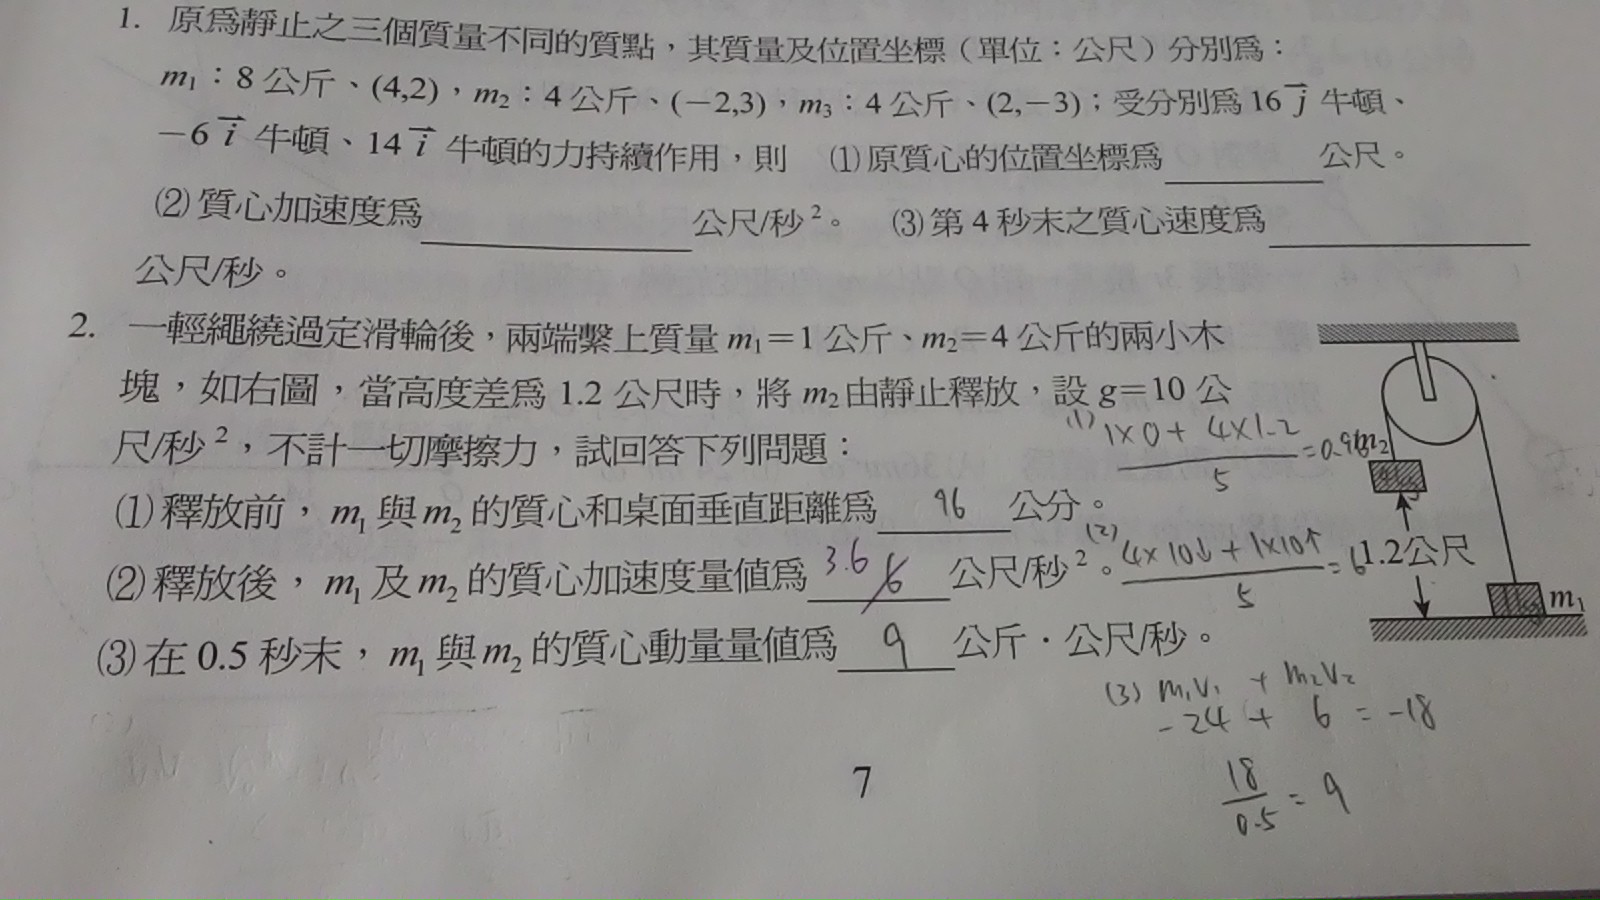 1. 原為靜止之三個質量不同的質點，其質量及位置坐標（單位：公尺）分別為：
m₁：8 公斤、(4,2)，m₂：4 公斤、(−2,3)，m₃：4 公斤、(2,−3)；受分別為 16 j 牛頓、
−6 i 牛頓、14 i 牛頓的力持續作用，則 (1)原質心的位置坐標為______公尺。
(2)質心加速度為______公尺/秒²。 (3)第 4 秒末之質心速度為______
公尺/秒。
2. 一輕繩繞過定滑輪後，兩端繫上質量 m₁＝1 公斤、m₂＝4 公斤的兩小木
塊，如右圖，當高度差為 1.2 公尺時，將 m₂由靜止釋放，設 g＝10 公
尺/秒²，不計一切摩擦力，試回答下列問題：
(1) 1×0 + 4×1.2 / 5 = 0.96
m₂
(1)釋放前，m₁與m₂的質心和桌面垂直距離為 96 公分。
(2)釋放後，m₁及m₂的質心加速度量值為 3.6 6 公尺/秒²。
(2) 4×10↓ + 1×10↑ / 5 = 6
1.2公尺
m₁
(3)在 0.5 秒末，m₁與m₂的質心動量量值為 9 公斤．公尺/秒。
(3) m₁v₁ + m₂v₂
-24 + 6 = -18
18 / 0.5 = 9
7